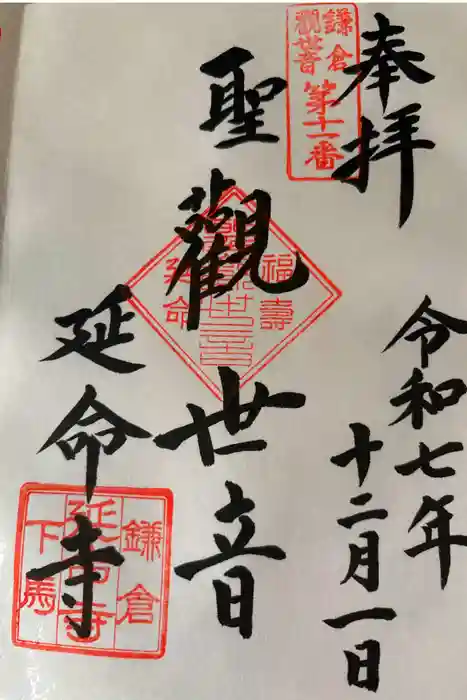 奉拝
鎌倉
観世音
第十一番
令和七年
十二月一日
聖觀世音
福寿
延命
延命寺
鎌倉
延命寺
下馬